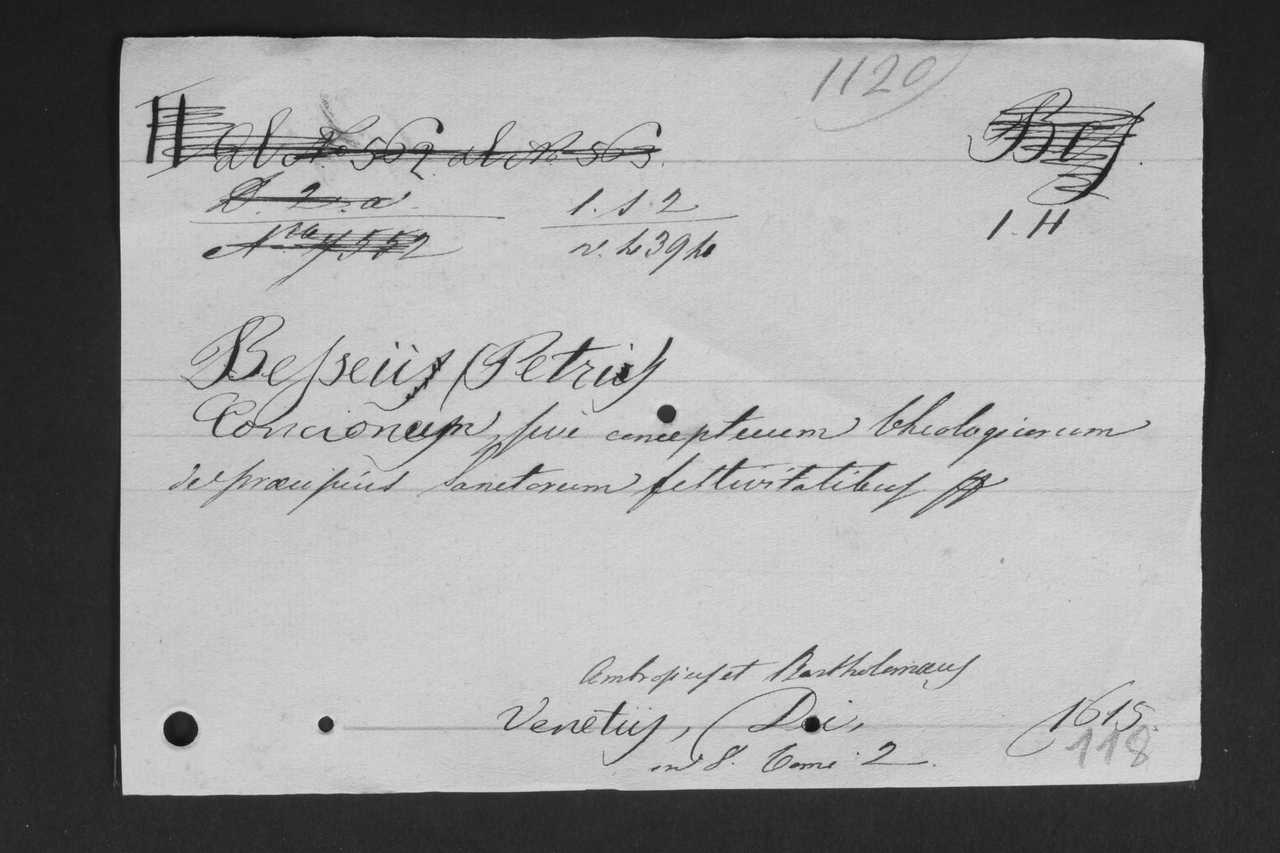 1120
al No 562 al No 563.
D. 2. a
1. S. 2
1. H
Nro 7552
n. 4394
Besseüs (Petrus)
Concionum, sive conceptuum theologicorum
de præcipuis Sanctorum festivitatibus
Ambrosius et Bartholomæus
Venetiis, Dei, 1615.
in 8. Tomi 2.
118